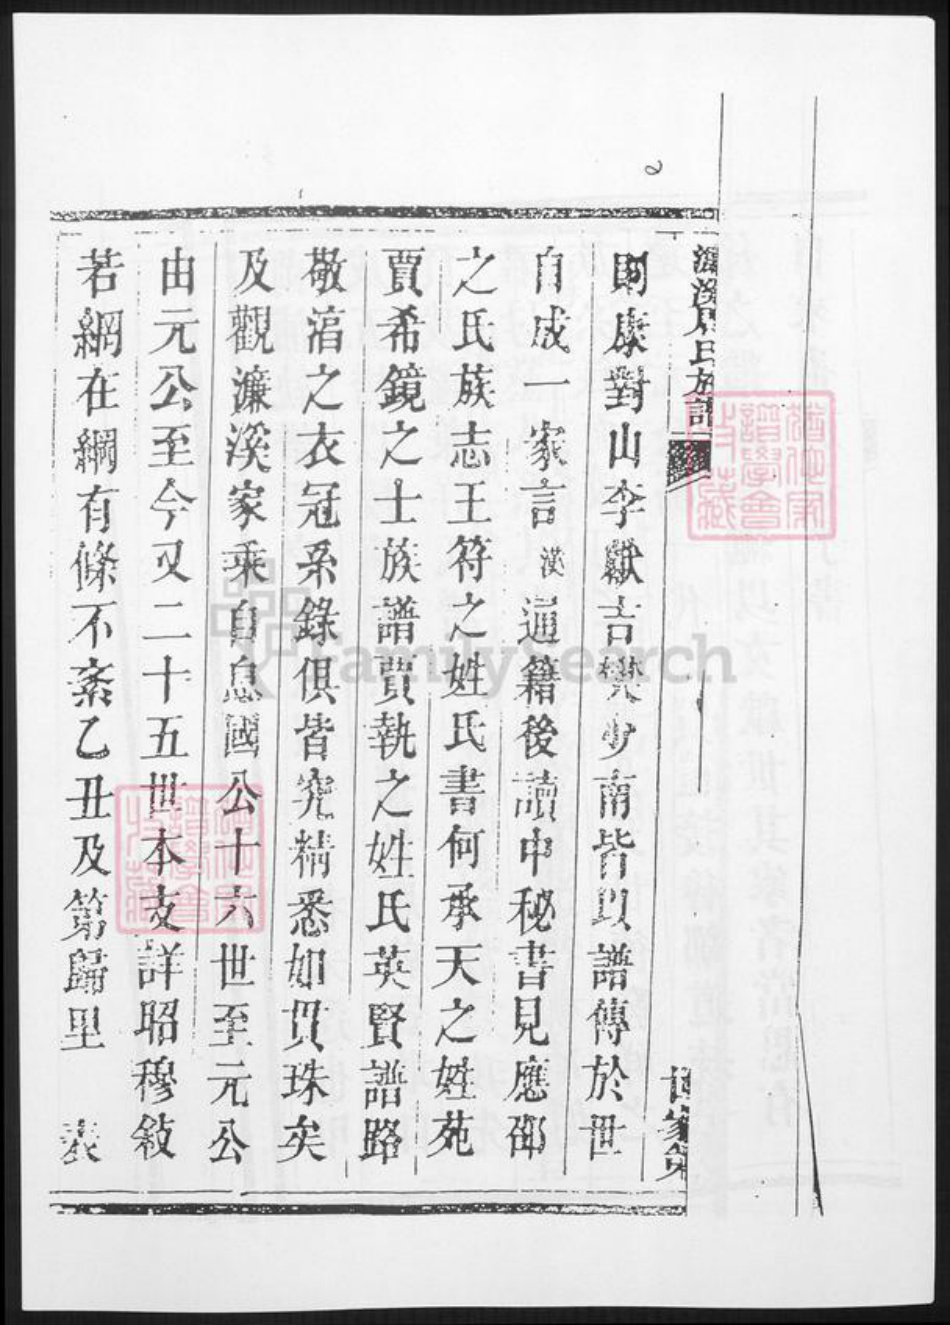 濂溪周氏族譜
世家第
則康對山李獻吉樊少南皆以譜傳於世
自成一家言漢通籍後讀中秘書見應邵
之氏族志王符之姓氏書何承天之姓苑
賈希鏡之士族譜賈執之姓氏英賢譜路
敬涫之衣冠系錄俱皆究精悉如貫珠矣
及觀濂溪家乘自息國公十六世至元公
由元公至今又二十五世本支詳昭穆敍
若綱在綱有條不紊乙丑及第歸里 表
FamilySearch